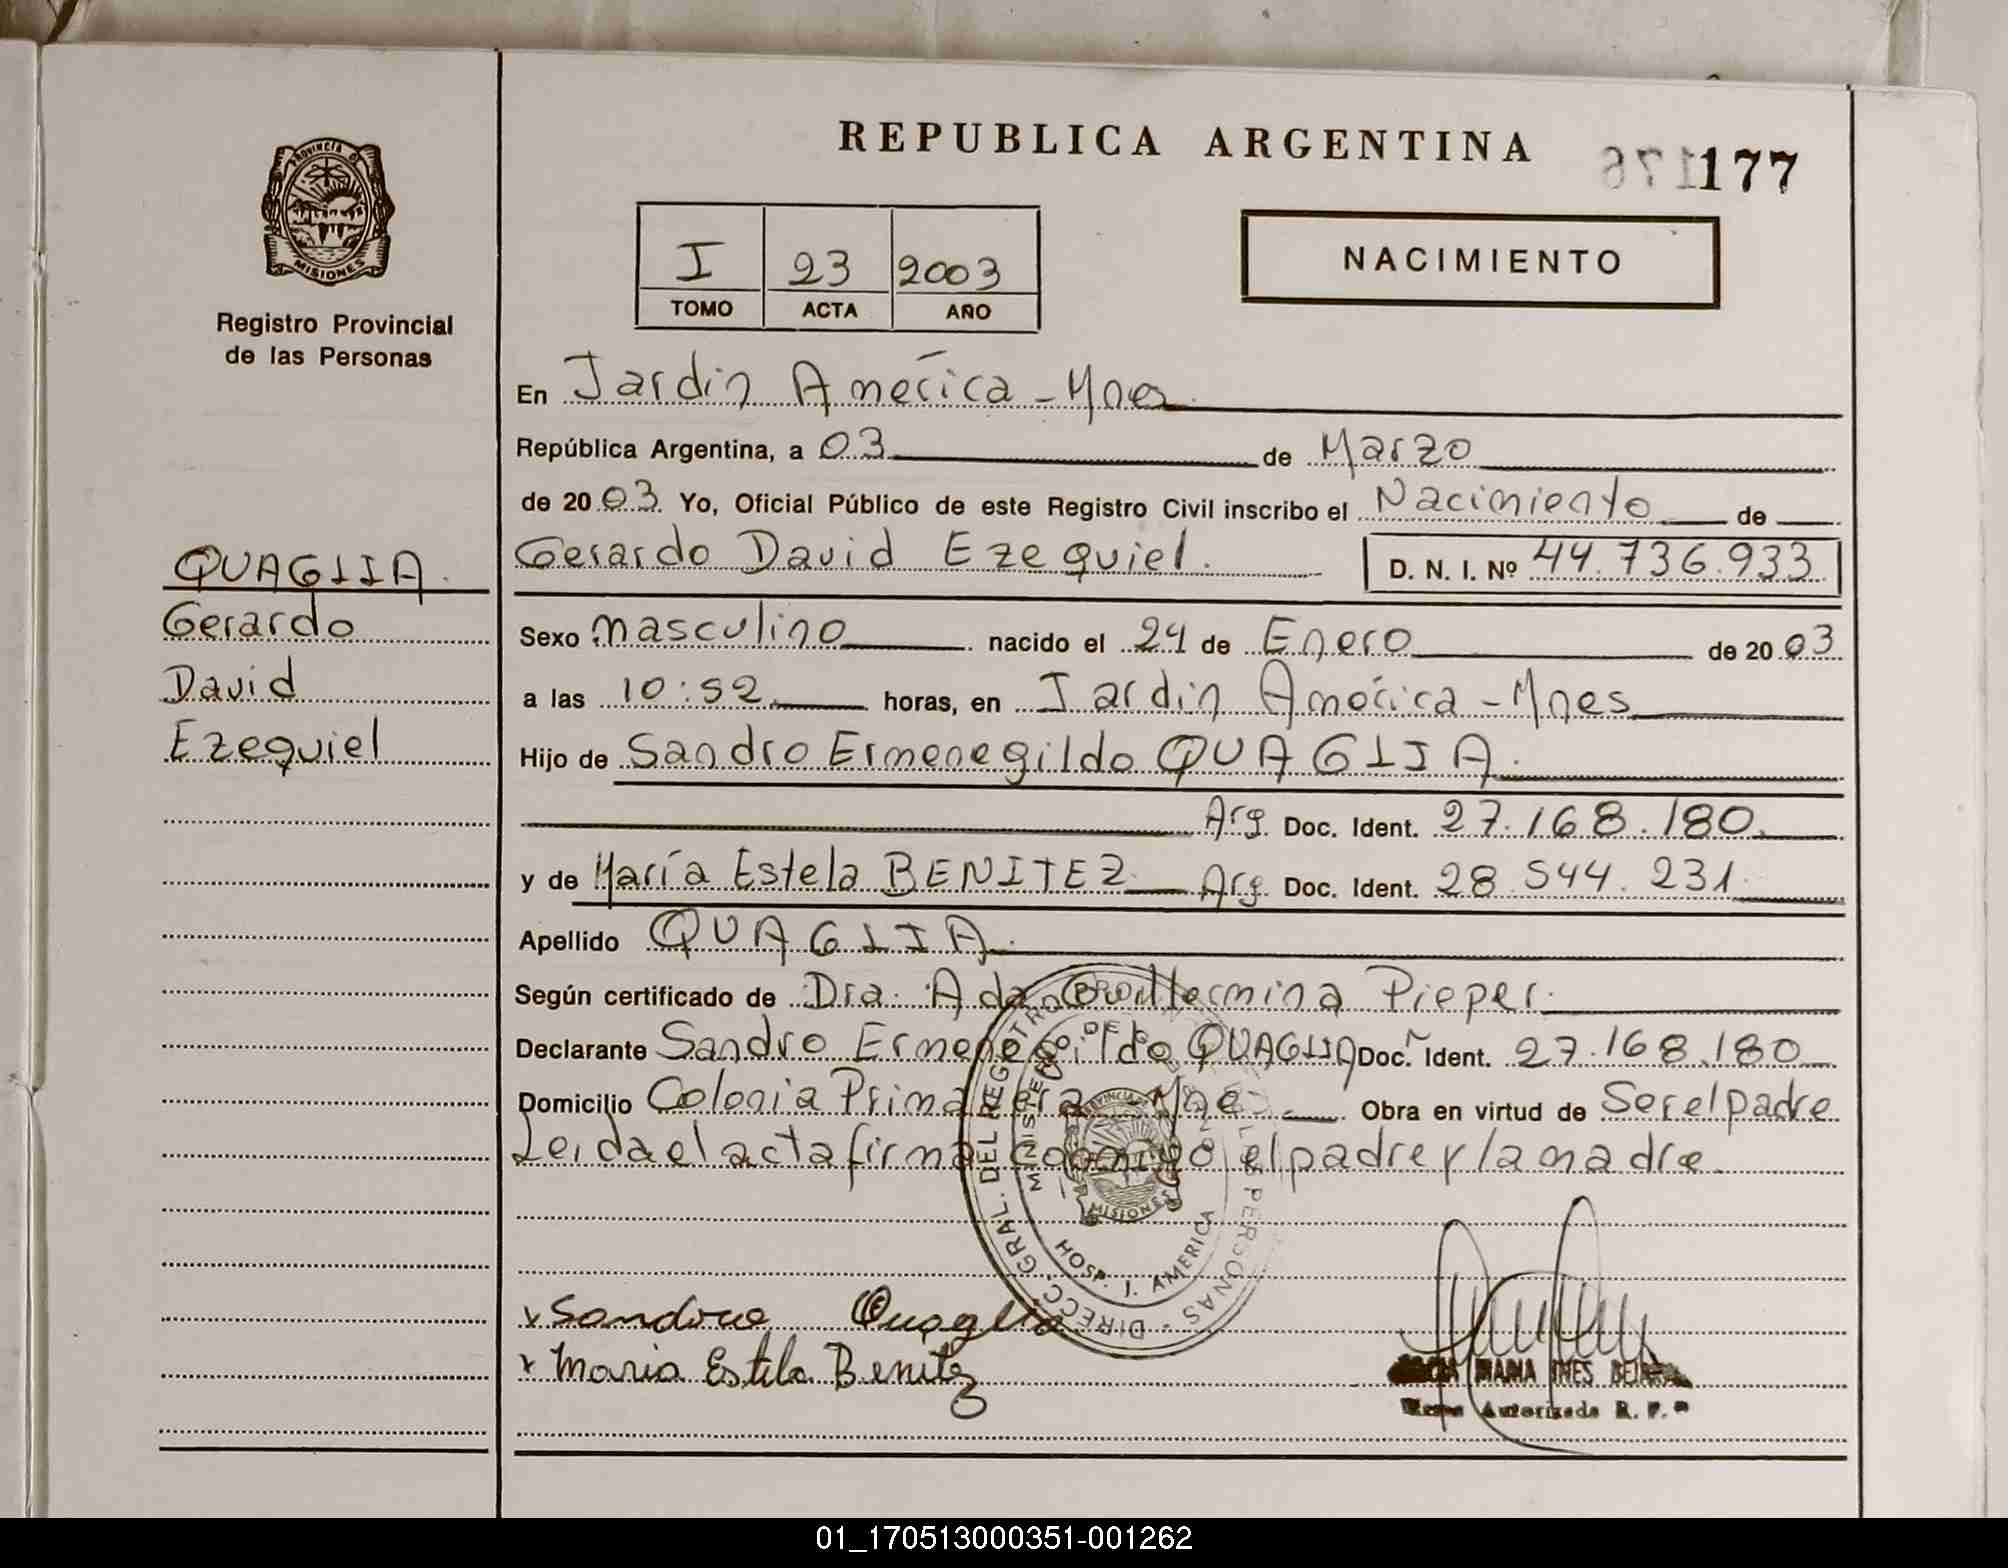 REPUBLICA ARGENTINA
176 177
PROVINCIA DE
MISIONES
Registro Provincial
de las Personas
I 23 2003
TOMO ACTA AÑO
NACIMIENTO
En Jardin América - Mnes
República Argentina, a 03 de Marzo
de 2003 Yo, Oficial Público de este Registro Civil inscribo el Nacimiento de
QUAGLIA.
Gerardo
David
Ezequiel
Gerardo David Ezequiel. D. N. I. Nº 44.736.933
Sexo masculino nacido el 24 de Enero de 2003
a las 10:52 horas, en Jardin América - Mnes
Hijo de Sandro Ermenegildo QUAGLIA.
Arg. Doc. Ident. 27.168.180.
y de María Estela BENITEZ Arg. Doc. Ident. 28.544.231
Apellido QUAGLIA.
Según certificado de Dra. Ada Guillermina Pieper.
Declarante Sandro Ermenegildo QUAGLIA Doc. Ident. 27.168.180
Domicilio Colonia Primavera Mnes Obra en virtud de Ser el padre
Leida el acta firma conmigo el padre y la madre.
DIRECC. GRAL. DEL REGISTRO DE LAS PERSONAS
HOSP. J. AMERICA
MISIONES
x Sandro Quaglia
x Maria Estela Benitez
MARIA INES
Autorizada R. P.
01_170513000351-001262